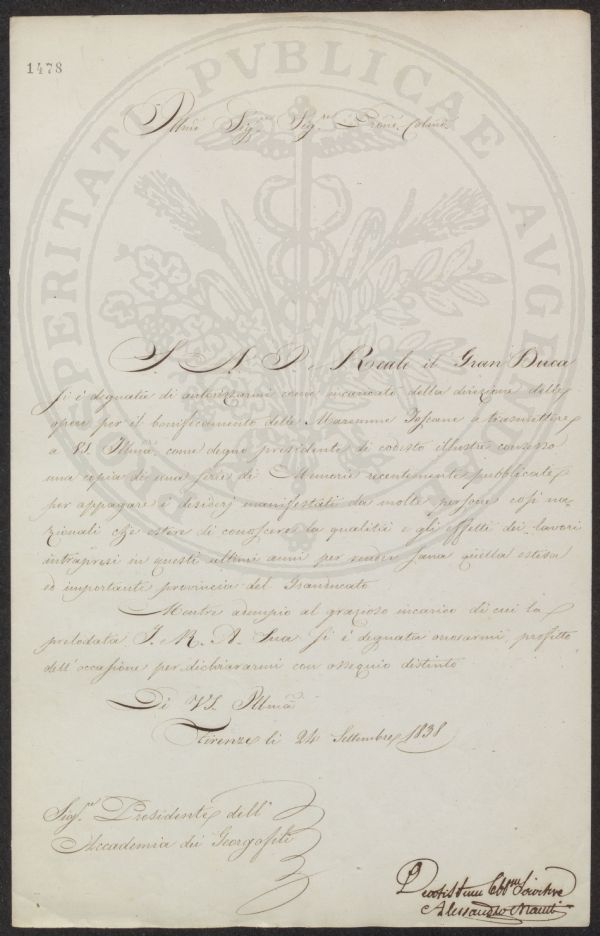 1478
PROSPERITATI PUBLICAE AUGENDAE
Illmo Sigre Sigre Prone Colmo
S. A. I. e Reale il Gran Duca
si è degnata di autorizzarmi come incaricato della direzione delle
opere per il bonificamento delle Maremme Toscane a trasmettere
a VS. Illma come degno presidente di codesto illustre consesso
una copia di una serie di Memorie recentemente pubblicate
per appagare i desiderj manifestati da molte persone così na-
zionali che estere di conoscere la qualità e gli effetti dei lavori
intrapresi in questi ultimi anni per render sana quella estesa
ed importante provincia del Granducato
Mentre adempio al grazioso incarico di cui la
prelodata I. e R. A. Sua si è degnata onorarmi, profitto
dell'occasione per dichiararmi con ossequio distinto
Di VS. Illma
Firenze li 24 Settembre 1838
Sigre Presidente dell'
Accademia dei Georgofili
Alessandro Manetti